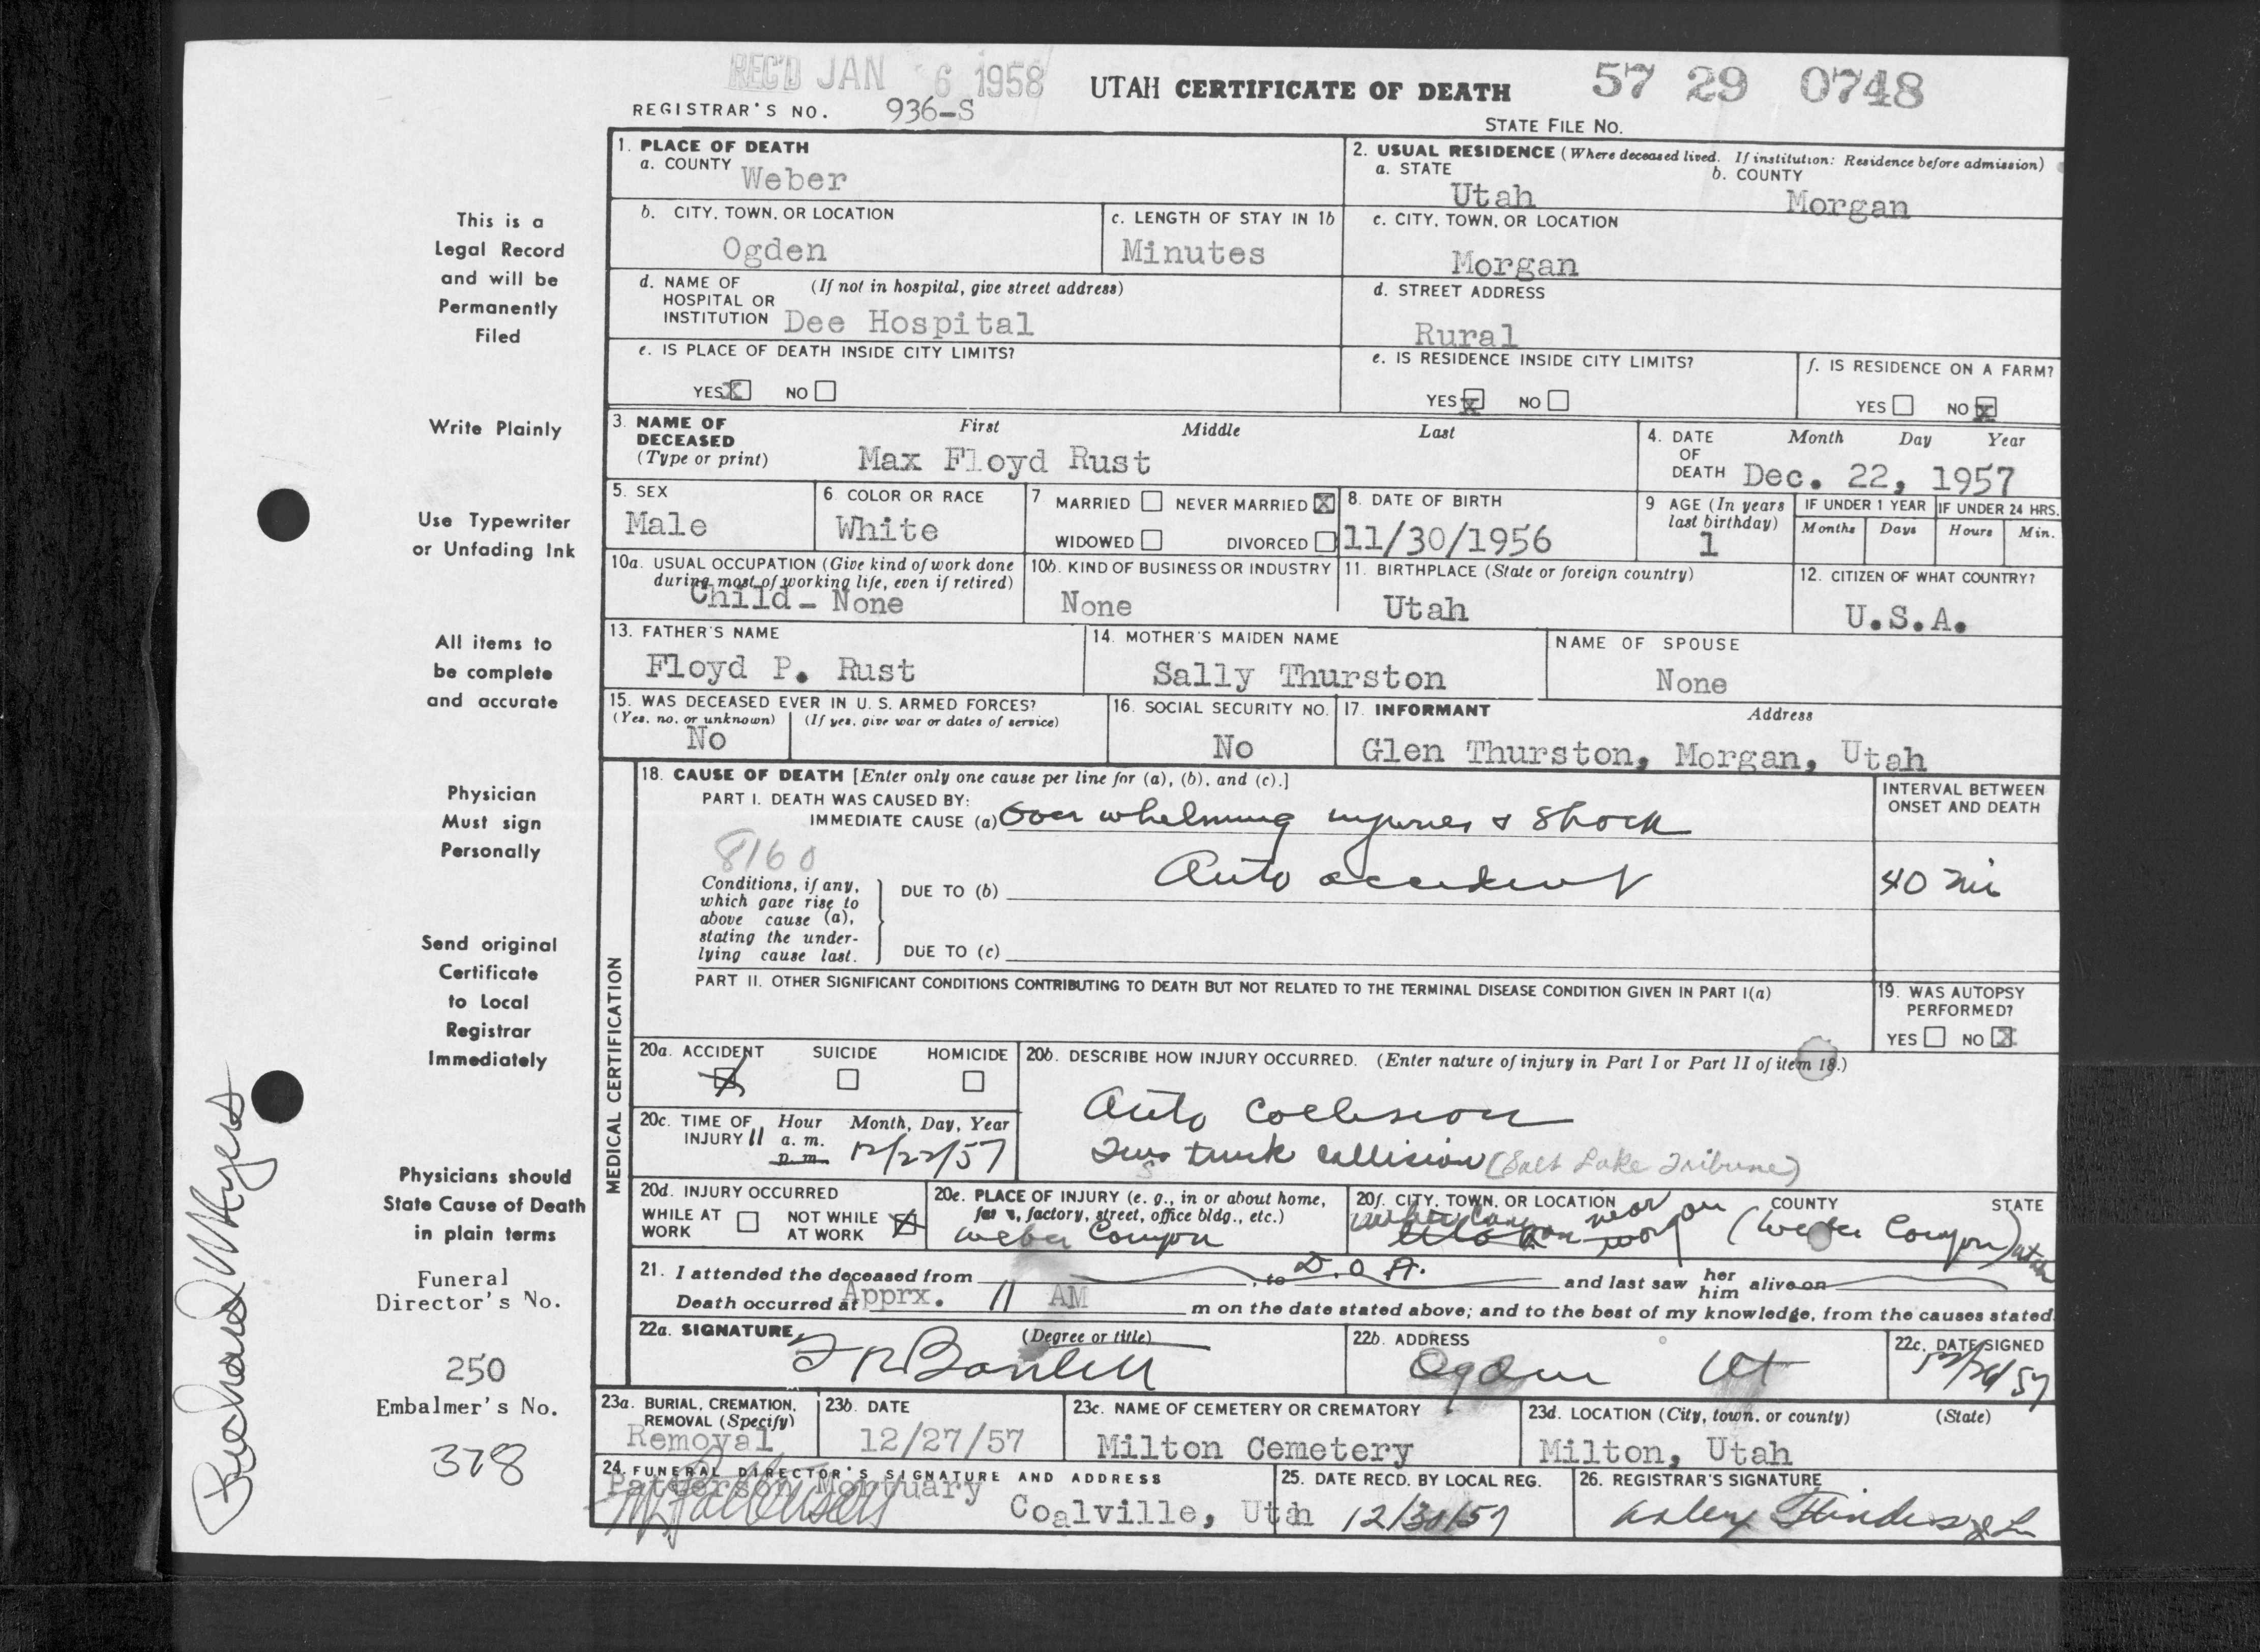 REC'D JAN 6 1958
UTAH CERTIFICATE OF DEATH
57 29 0748
REGISTRAR'S NO. 936-S
STATE FILE NO.
This is a
Legal Record
and will be
Permanently
Filed
Write Plainly
Use Typewriter
or Unfading Ink
All items to
be complete
and accurate
Physician
Must sign
Personally
Send original
Certificate
to Local
Registrar
Immediately
Physicians should
State Cause of Death
in plain terms
Funeral
Director's No.
250
Embalmer's No.
378
Richard Myers
1. PLACE OF DEATH
a. COUNTY Weber
b. CITY, TOWN, OR LOCATION
Ogden
c. LENGTH OF STAY IN 1b
Minutes
d. NAME OF (If not in hospital, give street address)
HOSPITAL OR
INSTITUTION Dee Hospital
e. IS PLACE OF DEATH INSIDE CITY LIMITS?
YES X NO
2. USUAL RESIDENCE (Where deceased lived. If institution: Residence before admission)
a. STATE Utah
b. COUNTY Morgan
c. CITY, TOWN, OR LOCATION
Morgan
d. STREET ADDRESS
Rural
e. IS RESIDENCE INSIDE CITY LIMITS?
YES X NO
f. IS RESIDENCE ON A FARM?
YES NO X
3. NAME OF DECEASED (Type or print)
First Middle Last
Max Floyd Rust
4. DATE OF DEATH
Month Day Year
Dec. 22, 1957
5. SEX
Male
6. COLOR OR RACE
White
7 MARRIED NEVER MARRIED X
WIDOWED DIVORCED
8. DATE OF BIRTH
11/30/1956
9 AGE (In years last birthday)
1
IF UNDER 1 YEAR
Months Days
IF UNDER 24 HRS.
Hours Min.
10a. USUAL OCCUPATION (Give kind of work done
during most of working life, even if retired)
Child - None
10b. KIND OF BUSINESS OR INDUSTRY
None
11. BIRTHPLACE (State or foreign country)
Utah
12. CITIZEN OF WHAT COUNTRY?
U.S.A.
13. FATHER'S NAME
Floyd P. Rust
14. MOTHER'S MAIDEN NAME
Sally Thurston
NAME OF SPOUSE
None
15. WAS DECEASED EVER IN U. S. ARMED FORCES?
(Yes, no, or unknown) (If yes, give war or dates of service)
No
16. SOCIAL SECURITY NO.
No
17. INFORMANT Address
Glen Thurston, Morgan, Utah
MEDICAL CERTIFICATION
18. CAUSE OF DEATH [Enter only one cause per line for (a), (b), and (c).]
PART I. DEATH WAS CAUSED BY:
IMMEDIATE CAUSE (a) Over whelming injuries & Shock
INTERVAL BETWEEN
ONSET AND DEATH
8160
Conditions, if any,
which gave rise to
above cause (a),
stating the under-
lying cause last.
DUE TO (b) Auto accident
40 mi
DUE TO (c)
PART II. OTHER SIGNIFICANT CONDITIONS CONTRIBUTING TO DEATH BUT NOT RELATED TO THE TERMINAL DISEASE CONDITION GIVEN IN PART I(a)
19. WAS AUTOPSY
PERFORMED?
YES NO X
20a. ACCIDENT SUICIDE HOMICIDE
X
20b. DESCRIBE HOW INJURY OCCURRED. (Enter nature of injury in Part I or Part II of item 18.)
Auto Collision
Two truck collision (Salt Lake Tribune)
20c. TIME OF INJURY
Hour Month, Day, Year
11 a. m.
p. m.
12/22/57
20d. INJURY OCCURRED
WHILE AT WORK NOT WHILE AT WORK X
20e. PLACE OF INJURY (e. g., in or about home,
farm, factory, street, office bldg., etc.)
Weber Canyon
20f. CITY, TOWN, OR LOCATION COUNTY STATE
near (Weber Canyon) Utah
21. I attended the deceased from , to D.O.A. and last saw her him alive on
Death occurred at Apprx. 11 AM m on the date stated above; and to the best of my knowledge, from the causes stated.
22a. SIGNATURE (Degree or title)
22b. ADDRESS
Ogden Ut
22c. DATE SIGNED
12/26/57
23a. BURIAL, CREMATION,
REMOVAL (Specify)
Removal
23b. DATE
12/27/57
23c. NAME OF CEMETERY OR CREMATORY
Milton Cemetery
23d. LOCATION (City, town, or county) (State)
Milton, Utah
24. FUNERAL DIRECTOR'S SIGNATURE AND ADDRESS
Patterson Mortuary
Coalville, Utah
25. DATE RECD. BY LOCAL REG.
12/30/57
26. REGISTRAR'S SIGNATURE